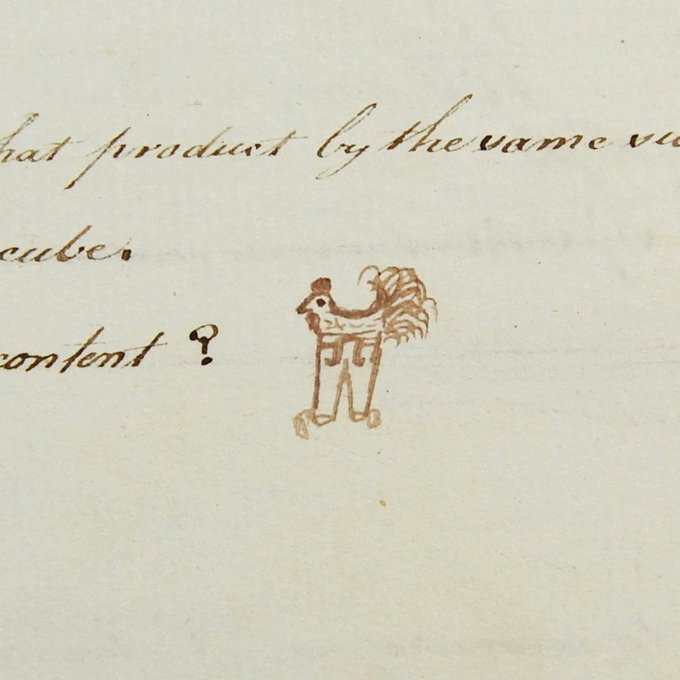 hat product by the same
cube.
content ?